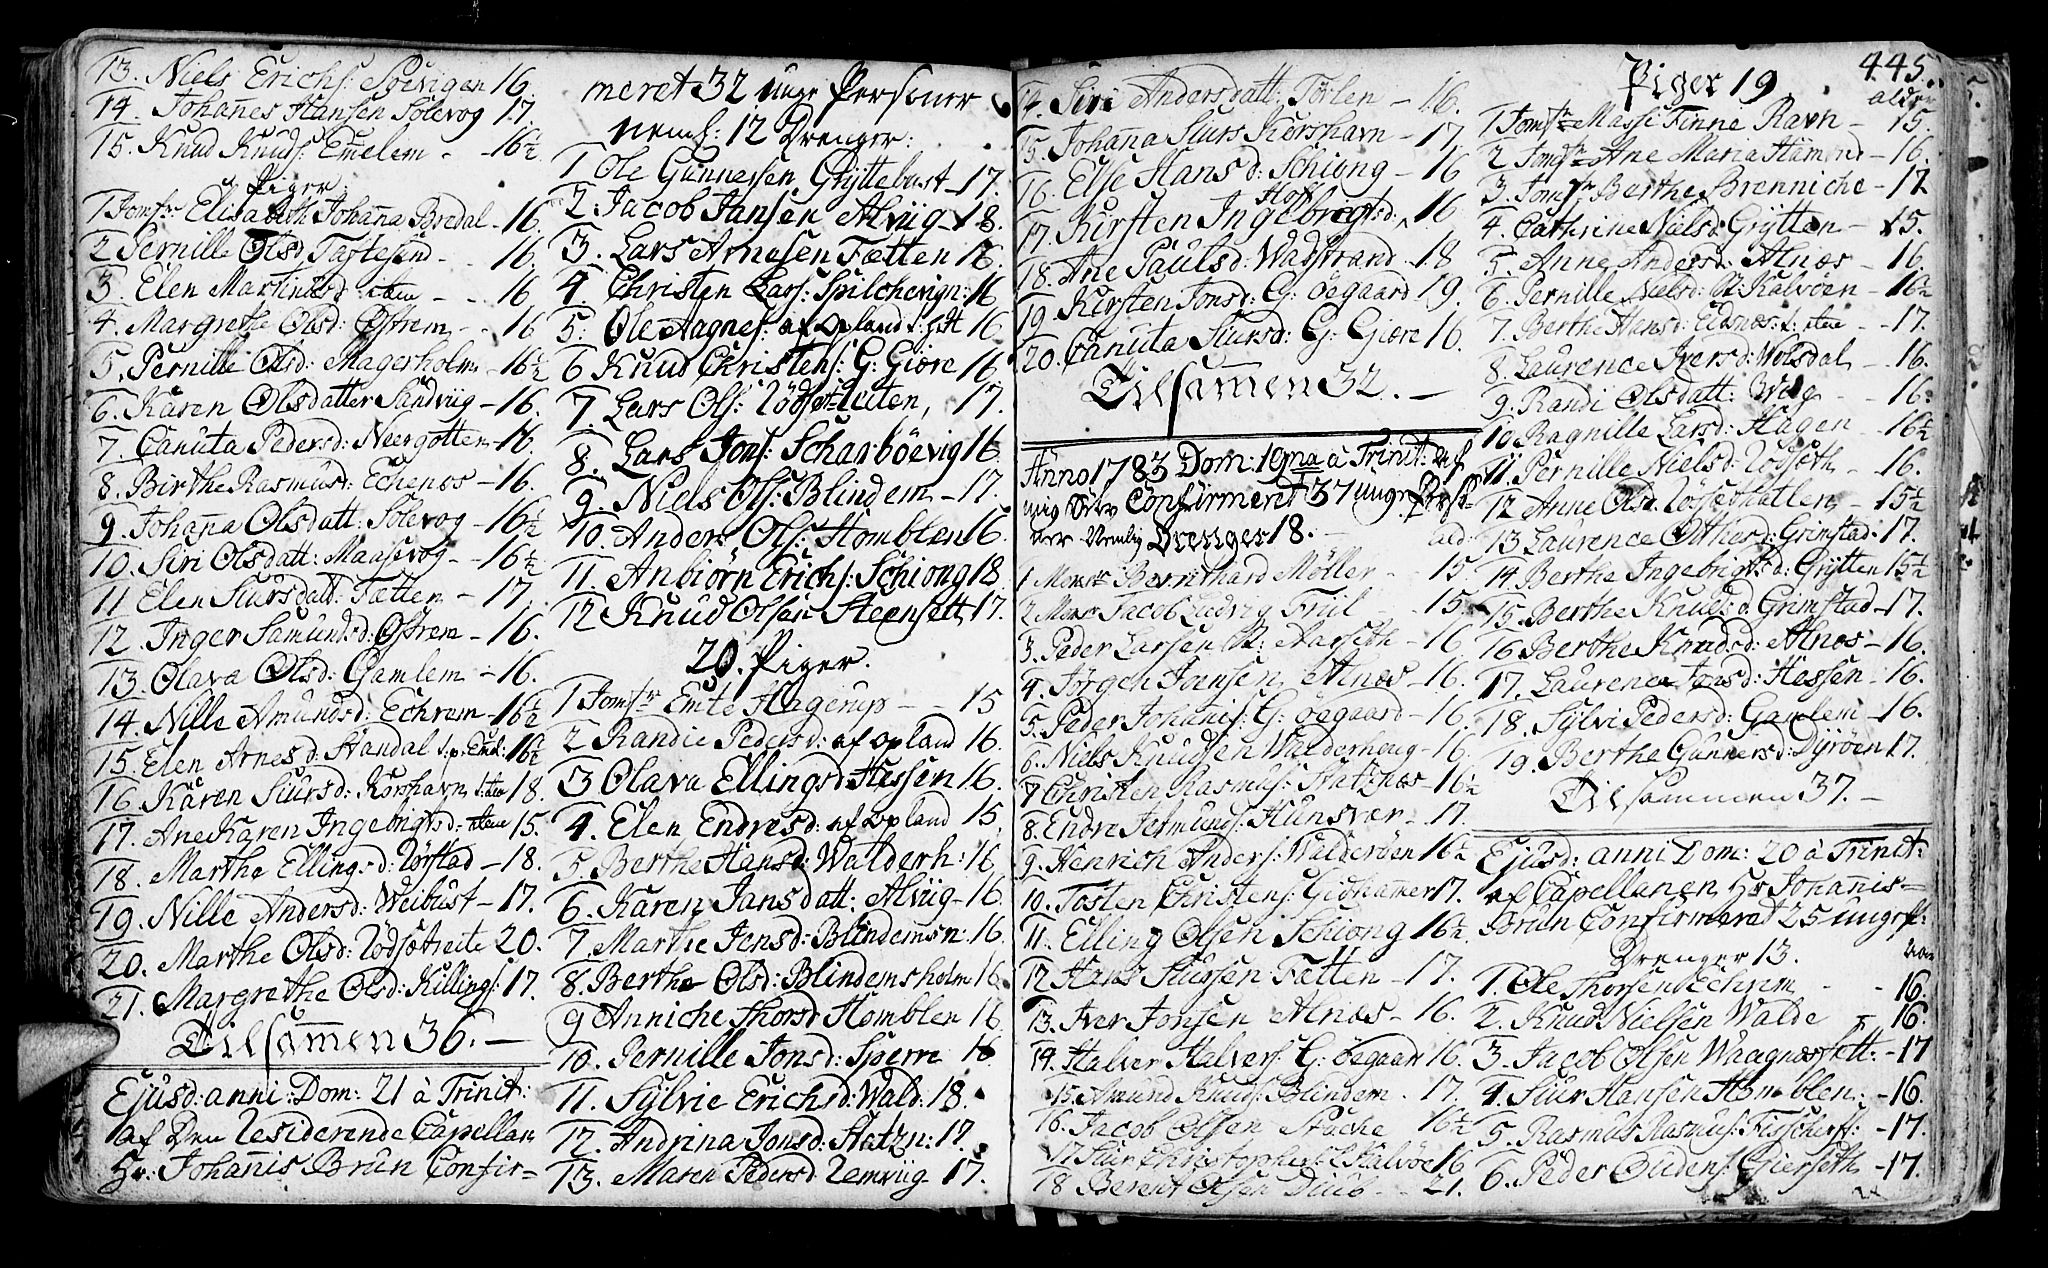 13. Niels Erichs: Spevigen 16.
14. Johanes Hansen Solevog 17.
15. Knud Knuds: Emelem - 16½
Piger
1 Jomfr Elisabeth Johana Bredal - 16.
2 Pernille Olsd Taftesund - 16.
3. Elen Martinusd: item - 16.
4. Margrethe Olsd: Østrem - 16
5. Pernille Olsd: Magerholm - 16½
6. Karen Olsdatter Sandviig - 16.
7. Canuta Pedersd: Neergotten - 16.
8. Birthe Rasmusd: Echenos - 16.
9. Johana Olsdatt: Solevog - 16½
10. Siri Olsdatt: Maasevog - 16½
11 Elen Siursdatt: Fætten - 17.
12. Inger Samundsd: Østrem - 16.
13. Olava Olsd: Gamlem - 16.
14. Nille Amundsd: Echrem - 16½
15. Elen Arnesd: Standal s.p. End: 16½
16. Karen Siursd: Korshavn 18.
17. Ane Karen Ingebrigtsd: item 15.
18. Marthe Ellingsd: Rørstad - 18.
19. Nille Andersd: Weibust - 17.
20. Marthe Olsd: Rødsætreite 20.
21. Margrethe Olsd: Killings: 17.
Tilsamen 36. -
Ejusd: anni: Dom: 21 à Trinit:
af Den Residerende Capellan
Hr. Johanis Brun Confir=
meret 32 unge Personer
neml: 12 Drenger:
1 Ole Gunnersen Gryttebust - 17.
2. Jacob Jansen Alviig - 18.
3. Lars Arnesen Fætten 16.
4. Christen Lars: Spilchevign: 16
5. Ole Aagnes: af Opland 16
6 Knud Christens: G: Giøre 16
7. Lars Ols: Rødsetreiten, 17.
8. Lars Jons: Scharbøevig 16.
9. Niels Ols: Blindem - 17.
10. Anders Ols: Homblen 16.
11. Anbiørn Erichs: Schiong 18
12 Knud Olsen Steensett 17.
20. Piger.
1 Jomfr Emte Hagerup - - 15
2 Randie Pedersd: af opland 16.
3 Olava Ellingsd Hessen 16.
4. Elen Endresd: af opland 15
5. Berthe Hansd: Walderh: 16
6. Karen Jansdatt: Alviig - 16.
7. Marthe Jensd: Blindemsn: 16.
8. Berthe Olsd: Blindemsholm 16.
9 Anniche Thorsd Homblen 16.
10. Pernille Jonsd: Sperre 16
11. Sylvie Erichsd: Wald: 18.
12. Andrina Jonsd: Statzn: 17.
13. Maren Pedersd Remviig - 17.
14. Siri Andersdatt: Tørlen - 16.
15. Johana Siurs Korshavn - 17.
16. Else Hansd: Schiong - 16
17. Kirsten Ingebrigtsd: Hoff 16.
18. Ane Paulsd: Wadstrand - 18
19 Kirsten Jonsd: G: Øegaard 19.
20. Canuta Siursd: G: Giøre 16.
Tilsamen 32. -
Anno 1783 Dom: 19na à Trinit: af
mig Confirmeret 37 unge
Nemlig Drenger 18. - ald:
1 Mons Bernthard Møller - 15
2 Mons Jacob Ludvig Friil 15
3. Peder Larsen Aarseth - 16
4. Jørgen Jansen Alnæs - 16.
5. Peder Johanis: G: Øegaard - 16.
6. Niels Knudsen Walderhoug - 16.
7 Christen Rasmus: Statznæs - 16½
8. Endre Jermunds: Hunsvær - 17.
9. Henrich Anders: Walderøen 16½
10. Tosten Christens: Gidhamer 17.
11. Elling Olsen Schiong 16½
12 Hans Siursen Fætten - 17.
13. Iver Jonsen Alnæs - 16.
14. Halver Halvers: G: Øegaar 16.
15. Amund Knuds: Blindem. 17.
16. Jacob Olsen Stöche 16½
17 Siur Christophers: Kalvøe 16
18 Berent Olsen Diub - 21.
445.
Piger 19. alder
1 Jomfr Masse Finne Ravn - 15.
2 Jomfr Ane Maria Hamond - 16.
3. Jomfr Berthe Brenniche - 17
4. Catherine Nielsd Grytten - 15.
5. Anne Andersd: Alnæs - 16.
6. Pernille Nielsd: Kalvøen - 16½
7. Berthe Hansd: Eidsnæs - 17.
8. Laurence Iversd: Wolsdal - 16.
9. Randi Olsdatt: Wiig - 16.
10 Ragnille Larsd: Hagen - 16½
11. Pernille Nielsd: Rødsæth - 16.
12 Anne Olsd: - 15½
13 Laurence Othersd: Grimstad - 17.
14. Berthe Ingebrigtsd: Grytten 15½
15. Berthe Knudsd: Grimstad - 17.
16 Berthe Knudsd: Alnæs - 16.
17. Laurence Jonsd: Hessen - 16.
18. Sylvi Pedersd: Gamlem - 16.
19. Berthe Gunnersd: Dyrøen 17.
Tilsammen 37. -
Ejusd: anni Dom: 20 à Trinit:
af Capellanen Hr Johanis=
Brun Confirmeret 25 unge
Drenger 13.
1. Ole Thorsen Echrem - - 16.
2. Knud Nielsen Walde - 16.
3. Jacob Olsen Waagnæssett: - 17
4. Siur Hansen Homblen: - 16.
5. Rasmus Rasmus: Fisscherst: - 17.
6. Peder Oudens: Gierseth - 17.